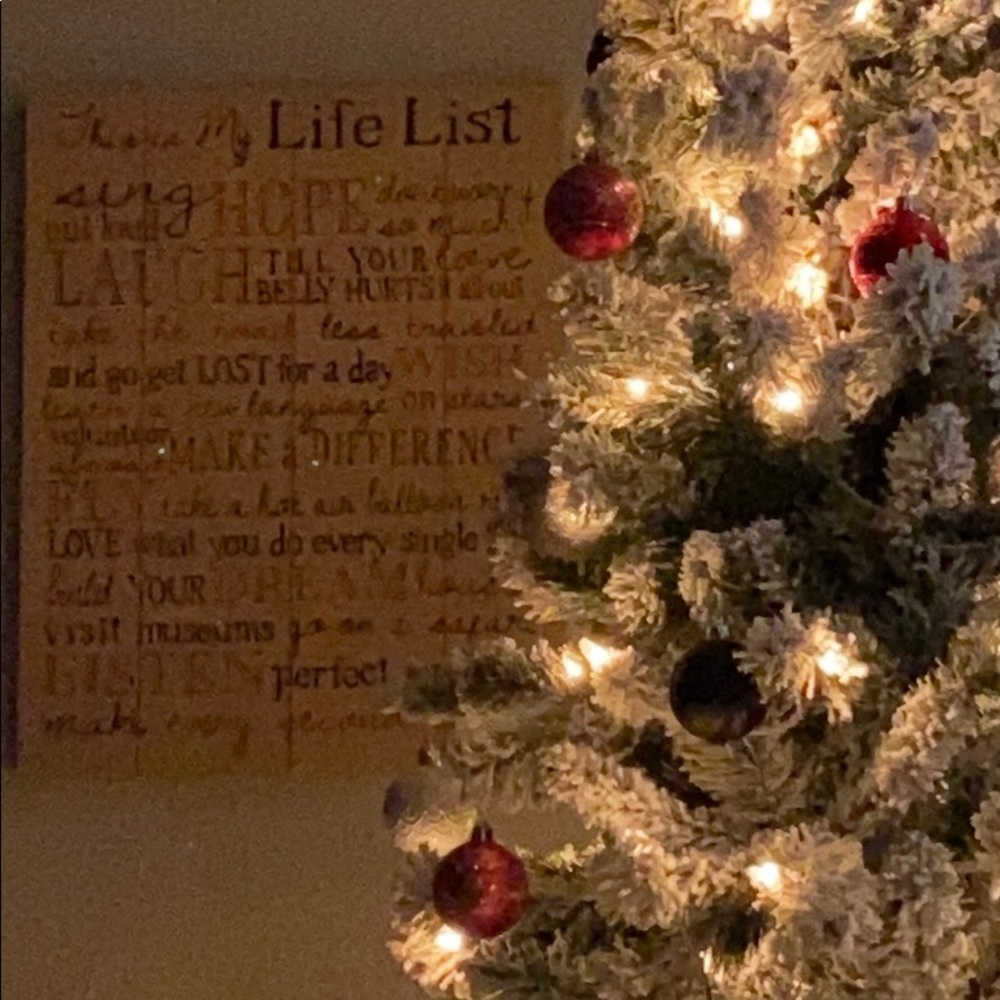 This is My Life List
sing HOPE don't worry
out loud so much
LAUGH TILL YOUR love
BELLY HURTS
take the road less traveled
and go get LOST for a day WISH
learn a new language on stars
volunteer MAKE a DIFFERENCE
FLY take a hot air balloon
LOVE what you do every single
build YOUR DREAM house
visit museums go on a safari
LISTEN perfect
make every second